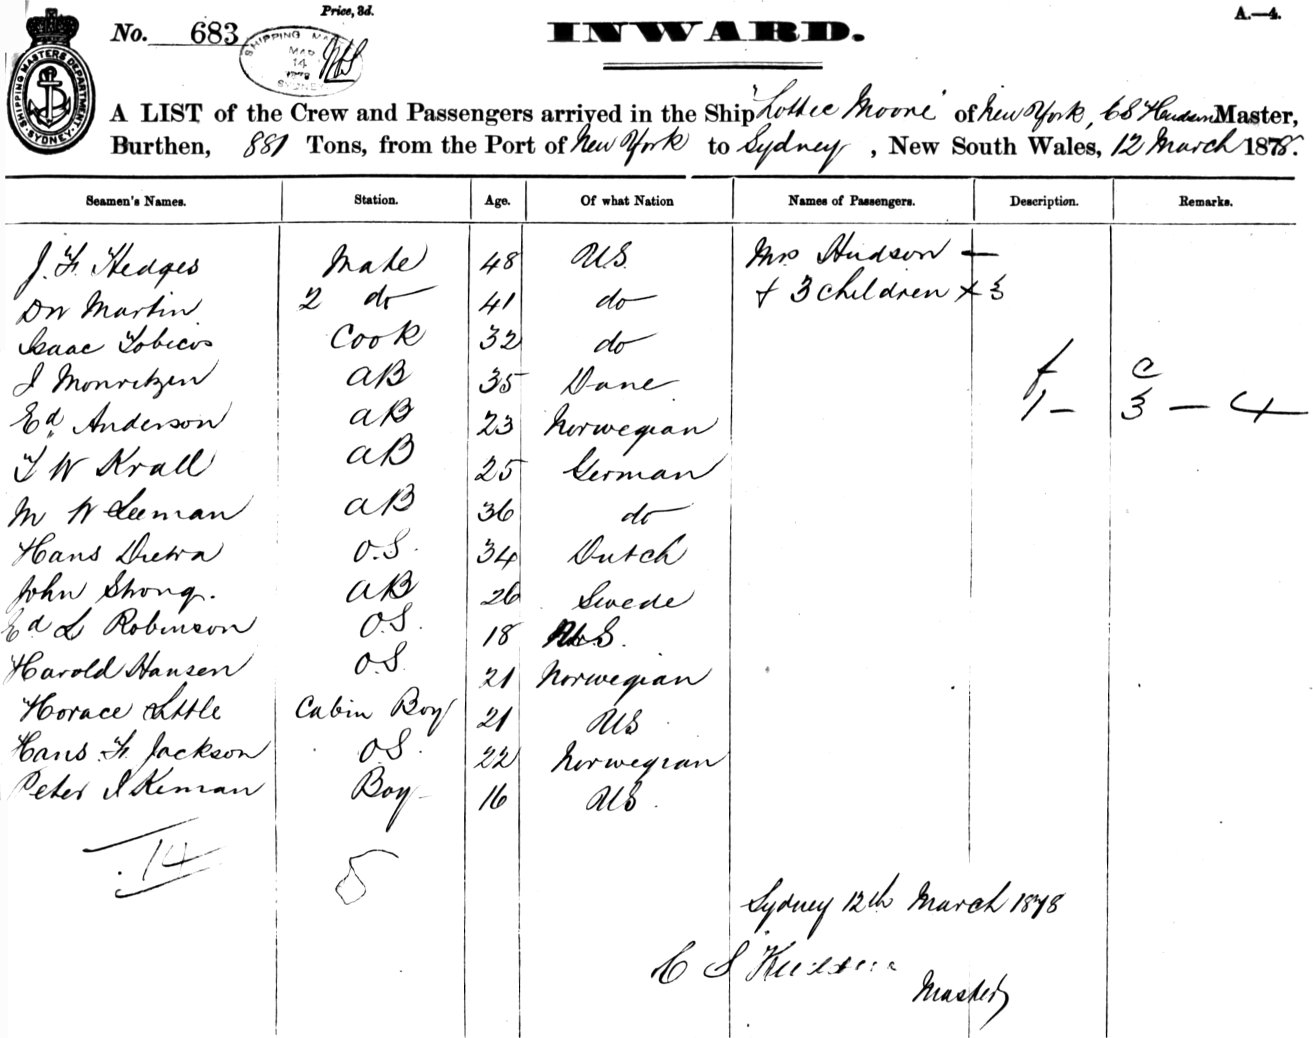 Price, 3d.
A.—4.
No. 683
INWARD.
SHIPPING MASTERS DEPARTMENT
SYDNEY
SHIPPING MA
MAR
14
1878
SYDNEY
A LIST of the Crew and Passengers arrived in the Ship "Lottie Moore" of New York, C S Hudson Master,
Burthen, 881 Tons, from the Port of New York to Sydney, New South Wales, 12 March 1878.
Seamen's Names. Station. Age. Of what Nation Names of Passengers. Description. Remarks.
J. F. Hedges Mate 48 U.S. Mrs Hudson —
D W Martin 2 do 41 do + 3 children × 3
Isaac Cook 32 do
J AB 35 Dane f c
Ed Anderson AB 23 Norwegian 1 — 3 — 4
T W Krall AB 25 German
M W Leeman AB 36 do
Hans O.S. 34 Dutch
John Strong. AB 26 Swede
Ed L Robinson O.S. 18 U.S.
Harold Hansen O.S. 21 Norwegian
Horace Little Cabin Boy 21 US
Hans F. Jackson O.S. 22 Norwegian
Peter J Keman Boy 16 US
14
Sydney 12th March 1878
C S Hudson
Master